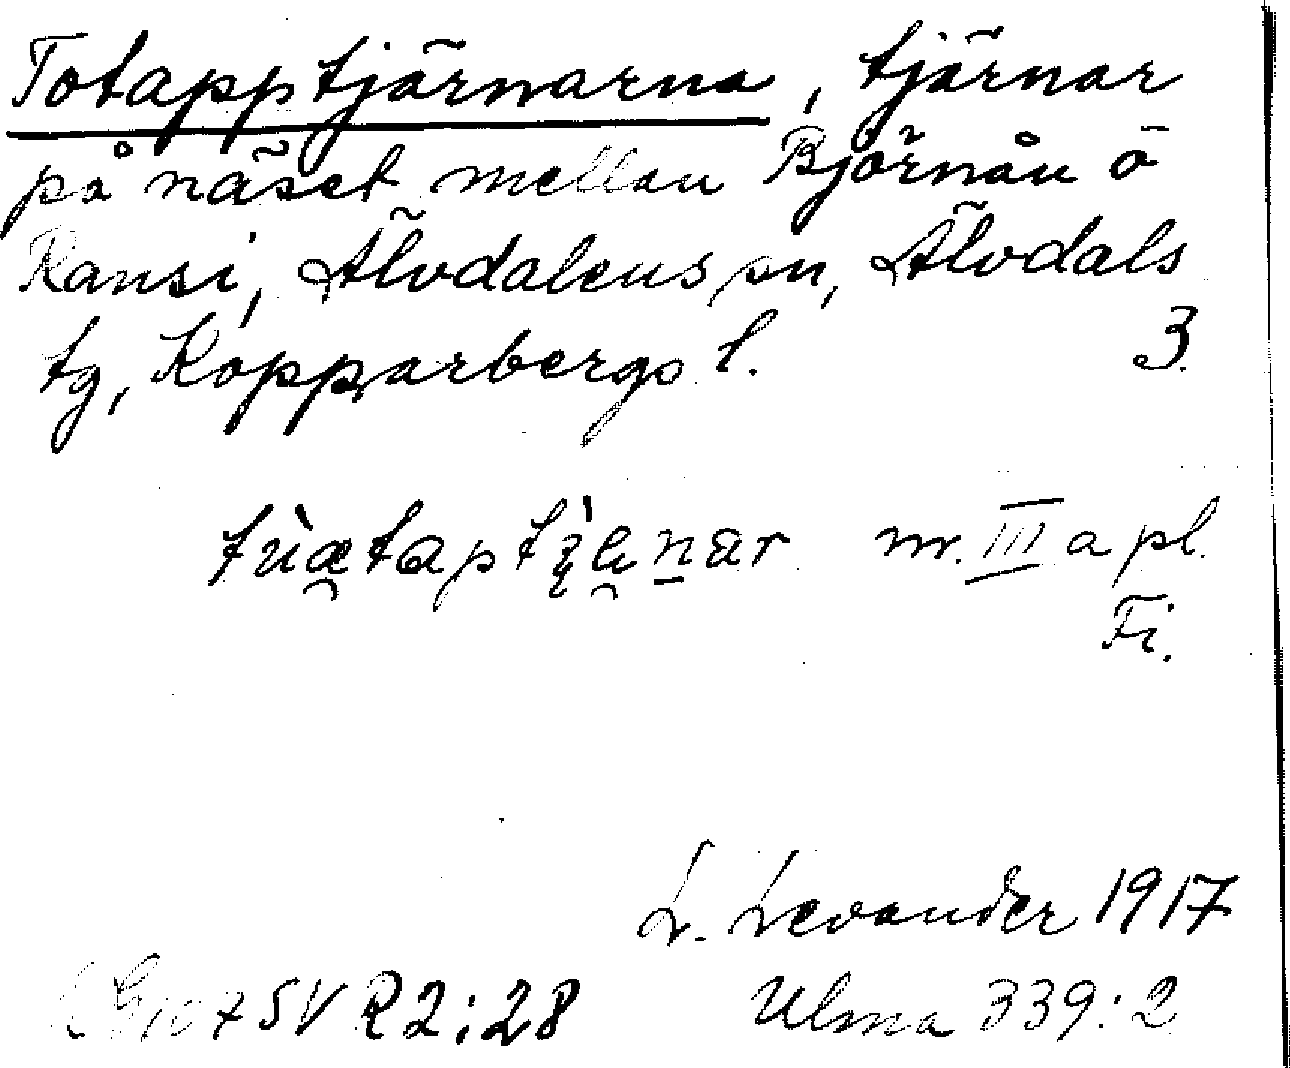 Totapptjärnarna, tjärnar
på näset mellan Björnån o
Ransi, Älvdalens sn, Älvdals
tg, Kopparbergs l. 3.
nr. III a pl.
Fi.
L. Levander 1917
SV R2:28 Ulma 339:2